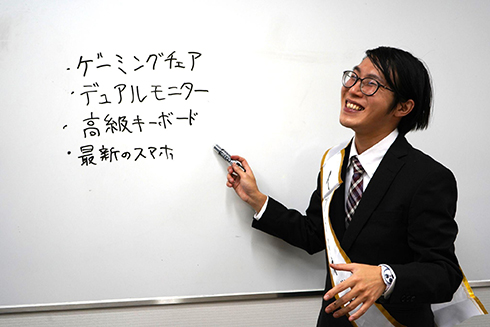 ・ゲーミングチェア
・デュアルモニター
・高級キーボード
・最新のスマホ